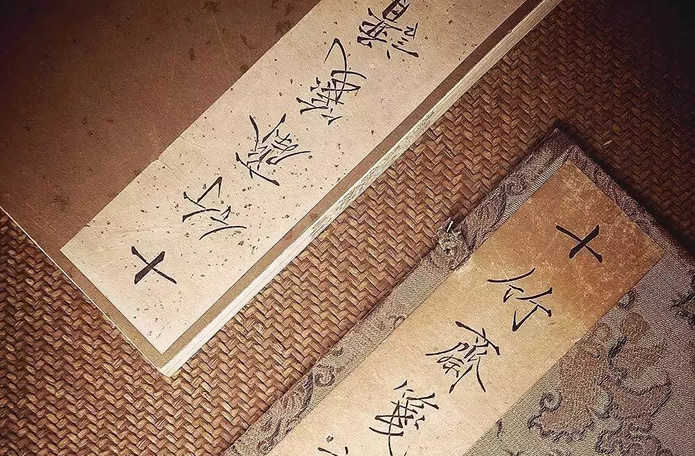 十竹齋譜
十竹齋箋